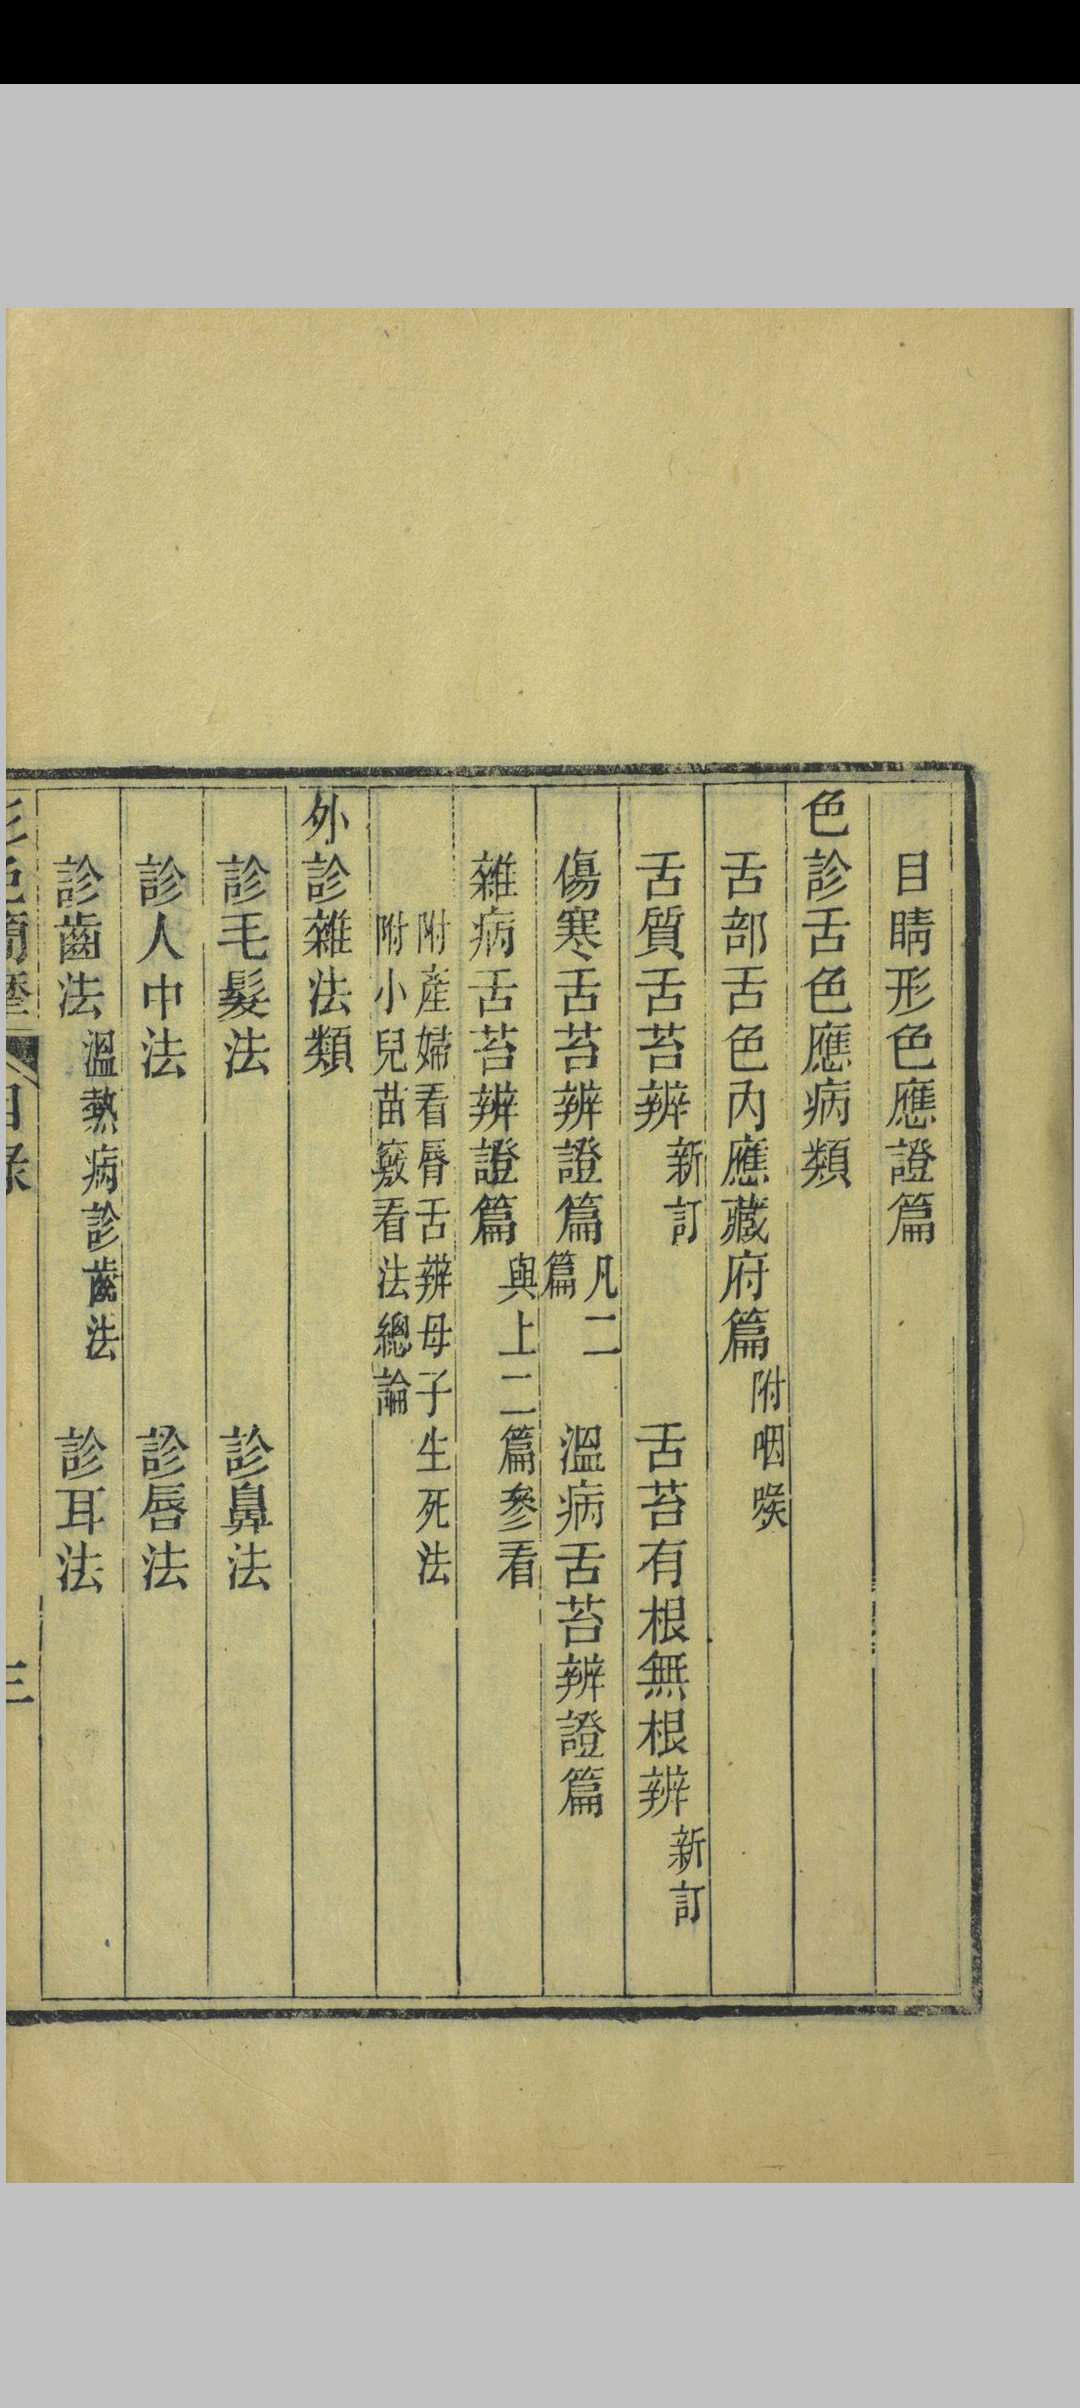 目睛形色應證篇
色診舌色應病類
舌部舌色內應藏府篇 附咽喉
舌質舌苔辨 新訂 舌苔有根無根辨 新訂
傷寒舌苔辨證篇 凡二篇 溫病舌苔辨證篇
雜病舌苔辨證篇 與上二篇參看
附產婦看脣舌辨母子生死法
附小兒苗竅看法總論
外診雜法類
診毛髮法 診鼻法
診人中法 診唇法
診齒法 溫熱病診齒法 診耳法
色簡摩 目錄 三